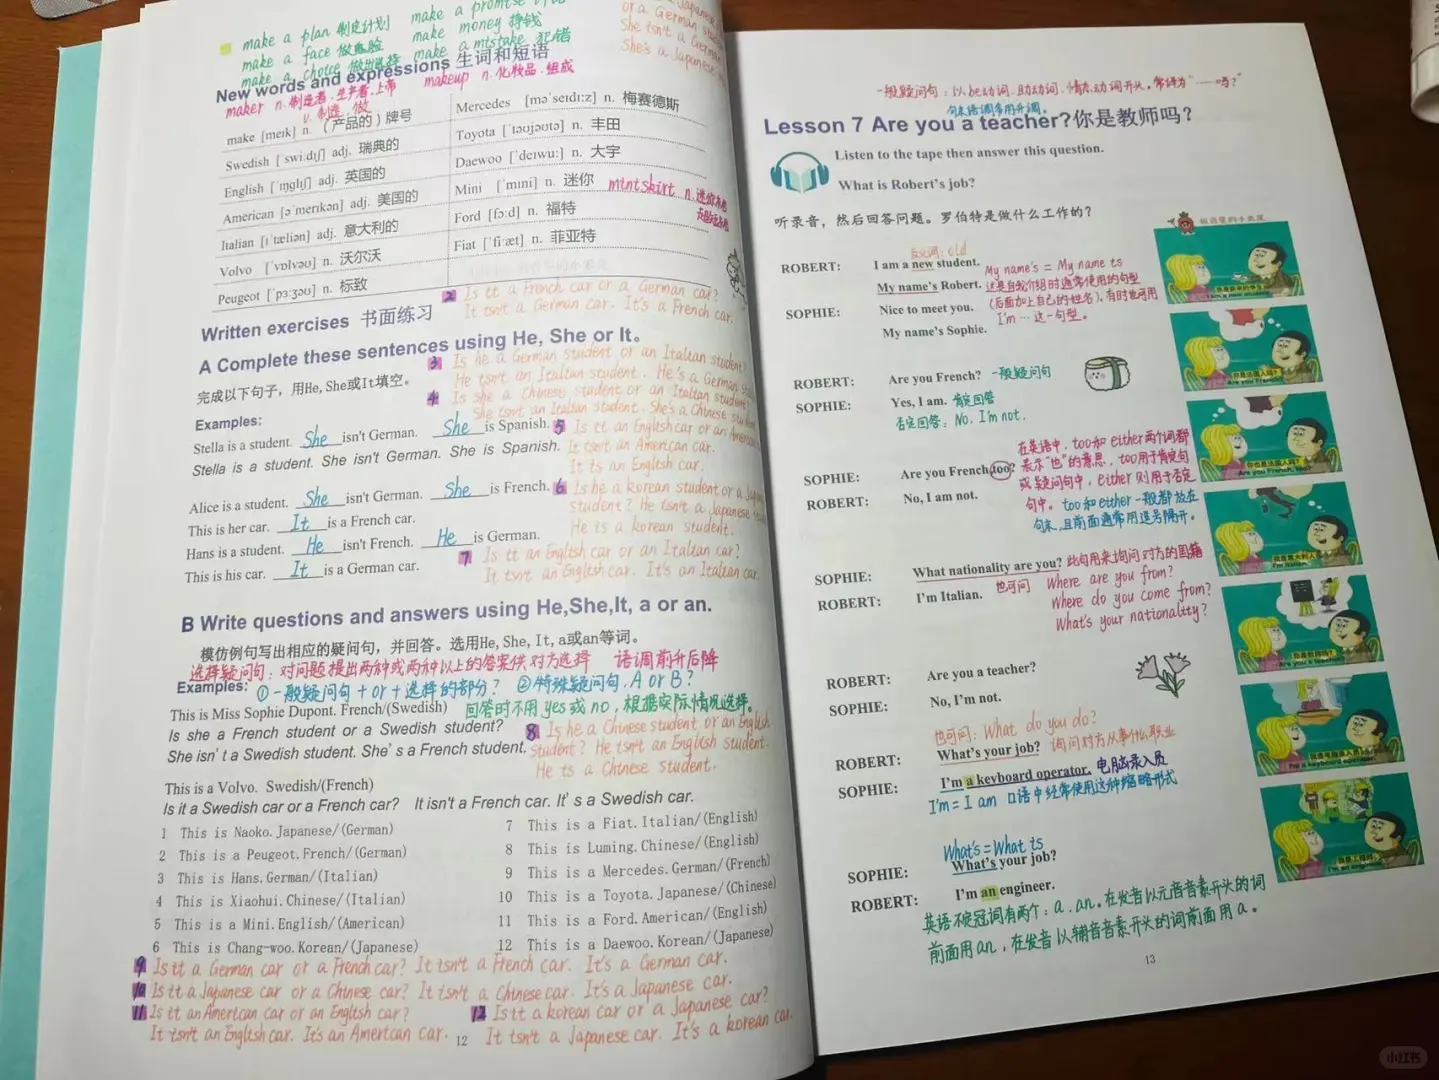 make a plan 制定计划 make a promise
make a face 做鬼脸 make money 挣钱
make a choice 做出选择 make a mistake 犯错
or a German
She isn't a German
She's a Japanese
New words and expressions 生词和短语
maker n.制造者.生产者.上帝 makeup n.化妆品.组成
v.制造.做
make [meɪk] n. （产品的）牌号
Swedish [ˈswiːdɪʃ] adj. 瑞典的
English [ˈɪŋglɪʃ] adj. 英国的
American [əˈmerɪkən] adj. 美国的
Italian [ɪˈtæliən] adj. 意大利的
Volvo [ˈvɒlvəʊ] n. 沃尔沃
Peugeot [ˈpɜːʒəʊ] n. 标致
Mercedes [məˈseɪdɪːz] n. 梅赛德斯
Toyota [ˈtəʊjəʊtə] n. 丰田
Daewoo [ˈdeɪwuː] n. 大宇
Mini [ˈmɪnɪ] n. 迷你 miniskirt n.迷你裙
Ford [fɔːd] n. 福特
Fiat [ˈfiːæt] n. 菲亚特
2 Is it a French car or a German car?
It isn't a German car. It's a French car.
Written exercises 书面练习
A Complete these sentences using He, She or It。
完成以下句子，用He, She或It填空。
3 Is he a German student or an Italian student?
He isn't an Italian student. He's a German
4 Is she a Chinese student or an Italian student?
She isn't an Italian student. She's a Chinese
Examples:
Stella is a student. She isn't German. She is Spanish.
Stella is a student. She isn't German. She is Spanish.
5 Is it an English car or an American
It isn't an American car.
It is an English car.
Alice is a student. She isn't German. She is French.
This is her car. It is a French car.
Hans is a student. He isn't French. He is German.
This is his car. It is a German car.
6 Is he a korean student or a
student? He isn't a Japanese
He is a korean student.
7 Is it an English car or an Italian car?
It isn't an English car. It's an Italian car.
B Write questions and answers using He,She,It, a or an.
模仿例句写出相应的疑问句，并回答。选用He, She, It, a或an等词。
选择疑问句：对问题提出两种或两种以上的答案供对方选择 语调前升后降
Examples: ①一般疑问句+or+选择的部分？ ②特殊疑问句, A or B?
This is Miss Sophie Dupont. French/(Swedish) 回答时不用yes或no，根据实际情况选择。
Is she a French student or a Swedish student?
She isn't a Swedish student. She's a French student.
8 Is he a Chinese student or an English
student? He isn't an English student.
He is a Chinese student.
This is a Volvo. Swedish/(French)
Is it a Swedish car or a French car? It isn't a French car. It's a Swedish car.
1 This is Naoko. Japanese/(German)
2 This is a Peugeot. French/(German)
3 This is Hans. German/(Italian)
4 This is Xiaohui. Chinese/(Italian)
5 This is a Mini. English/(American)
6 This is Chang-woo. Korean/(Japanese)
7 This is a Fiat. Italian/(English)
8 This is Luming. Chinese/(English)
9 This is a Mercedes. German/(French)
10 This is a Toyota. Japanese/(Chinese)
11 This is a Ford. American/(English)
12 This is a Daewoo. Korean/(Japanese)
9 Is it a German car or a French car? It isn't a French car. It's a German car.
10 Is it a Japanese car or a Chinese car? It isn't a Chinese car. It's a Japanese car.
11 Is it an American car or an English car?
It isn't an English car. It's an American car.
12 Is it a korean car or a Japanese car?
It isn't a Japanese car. It's a korean car.
12
一般疑问句：以be动词.助动词.情态动词开头。常译为“……吗？”
句末语调常用升调。
Lesson 7 Are you a teacher?你是教师吗？
Listen to the tape then answer this question.
What is Robert's job?
听录音，然后回答问题。罗伯特是做什么工作的？
反义词：old
ROBERT: I am a new student.
My name's Robert.
My name's = My name is
这是自我介绍时通常使用的句型
(后面加上自己的姓名), 有时也可用
I'm … 这一句型。
SOPHIE: Nice to meet you.
My name's Sophie.
ROBERT: Are you French? 一般疑问句
SOPHIE: Yes, I am. 肯定回答
否定回答：No, I'm not.
SOPHIE: Are you French too?
ROBERT: No, I am not.
在英语中，too和either两个词都
表示“也”的意思，too用于肯定句
或疑问句中，either则用于否定
句中。too和either一般都放在
句末，且前面通常用逗号隔开。
SOPHIE: What nationality are you? 此句用来询问对方的国籍
ROBERT: I'm Italian. 也可问 Where are you from?
Where do you come from?
What's your nationality?
ROBERT: Are you a teacher?
SOPHIE: No, I'm not.
也可问：What do you do?
ROBERT: What's your job? 询问对方从事什么职业
SOPHIE: I'm a keyboard operator. 电脑录入员
I'm = I am 口语中经常使用这种缩略形式
What's = What is
SOPHIE: What's your job?
ROBERT: I'm an engineer.
英语不定冠词有两个：a.an。在发音以元音音素开头的词
前面用an，在发音以辅音音素开头的词前面用a。
你是法国人吗？
Are you French?
你也是法国人吗？
I'm Italian.
你是教师吗？
Are you a teacher?
I'm a keyboard operator.
我是工程师。
13
小红书